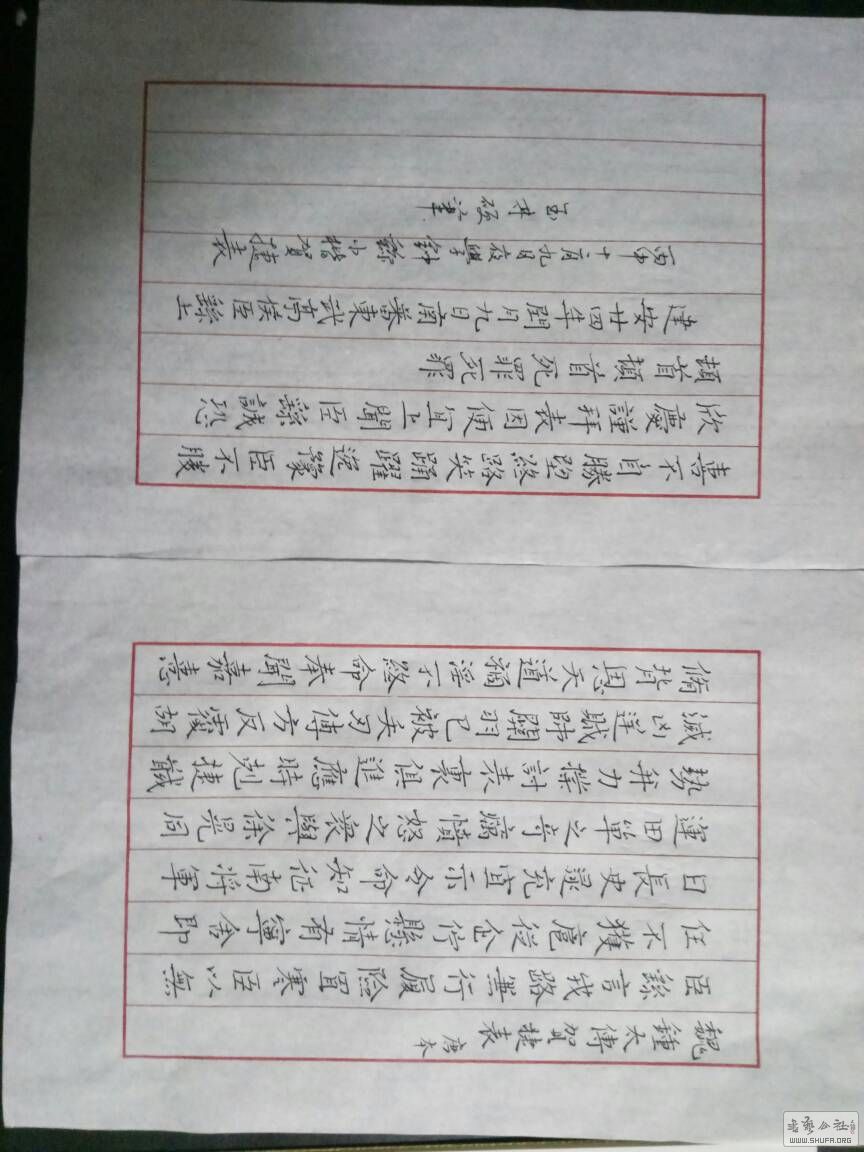 魏鍾太傅賀捷表 唐本
臣繇言戎路兼行履險冒寒臣以無
任不獲扈從企佇懸情有寧舍即
日長史逯充宣示令命知征南將軍
運田單之奇厲憤怒之衆與徐晃同
勢并力撲討表裏俱進應時剋捷馘
滅凶逆賊帥關羽已被矢刃傅方反覆胡
脩背恩天道禍淫不終命奉聞嘉憙
喜不自勝望路載笑踊躍逸豫臣不勝
欣慶謹拜表因便宜上聞臣繇誠恐
頓首頓首死罪死罪
建安廿四年閏月九日南蕃東武亭侯臣繇上
丙申十二月九日夜鍾繇小楷賀捷表
WWW.SHUFA.ORG